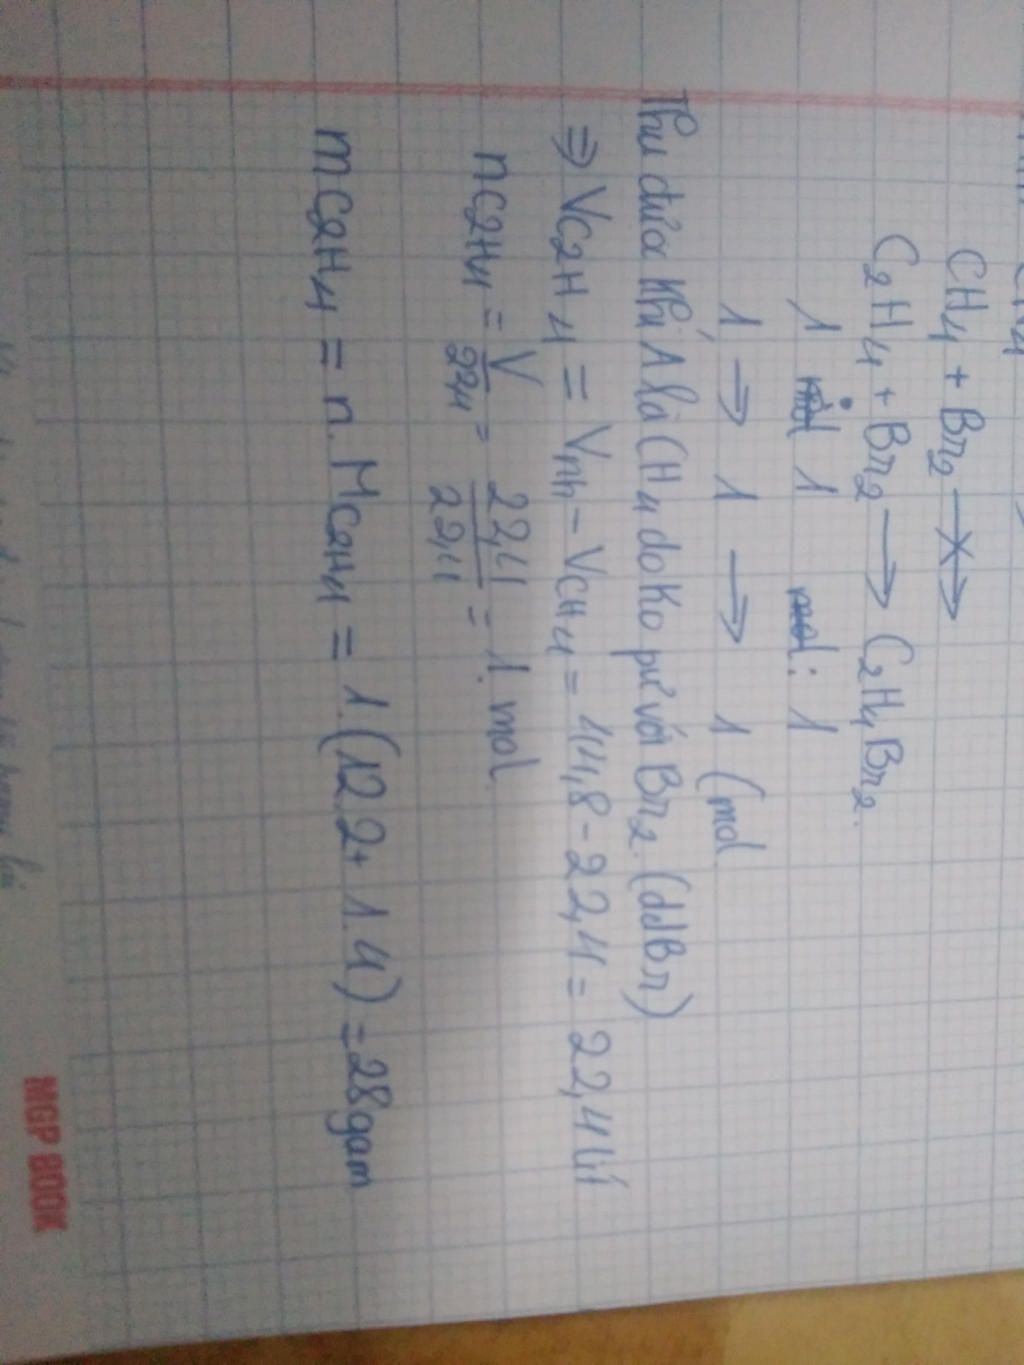 CH4 + Br2
C2H4 + Br2 → C2H4Br2.
1 1 : 1
1 → 1 → 1 (mol
Thu được khí A là CH4 do ko pứ với Br2. (ddBr)
⇒ VC2H4 = Vhh - VCH4 = 44,8 - 22,4 = 22,4 lít
nC2H4 = V/22,4 = 22,4/22,4 = 1 mol
mC2H4 = n. MC2H4 = 1.(12.2+1.4) = 28gam
MGP BOOK